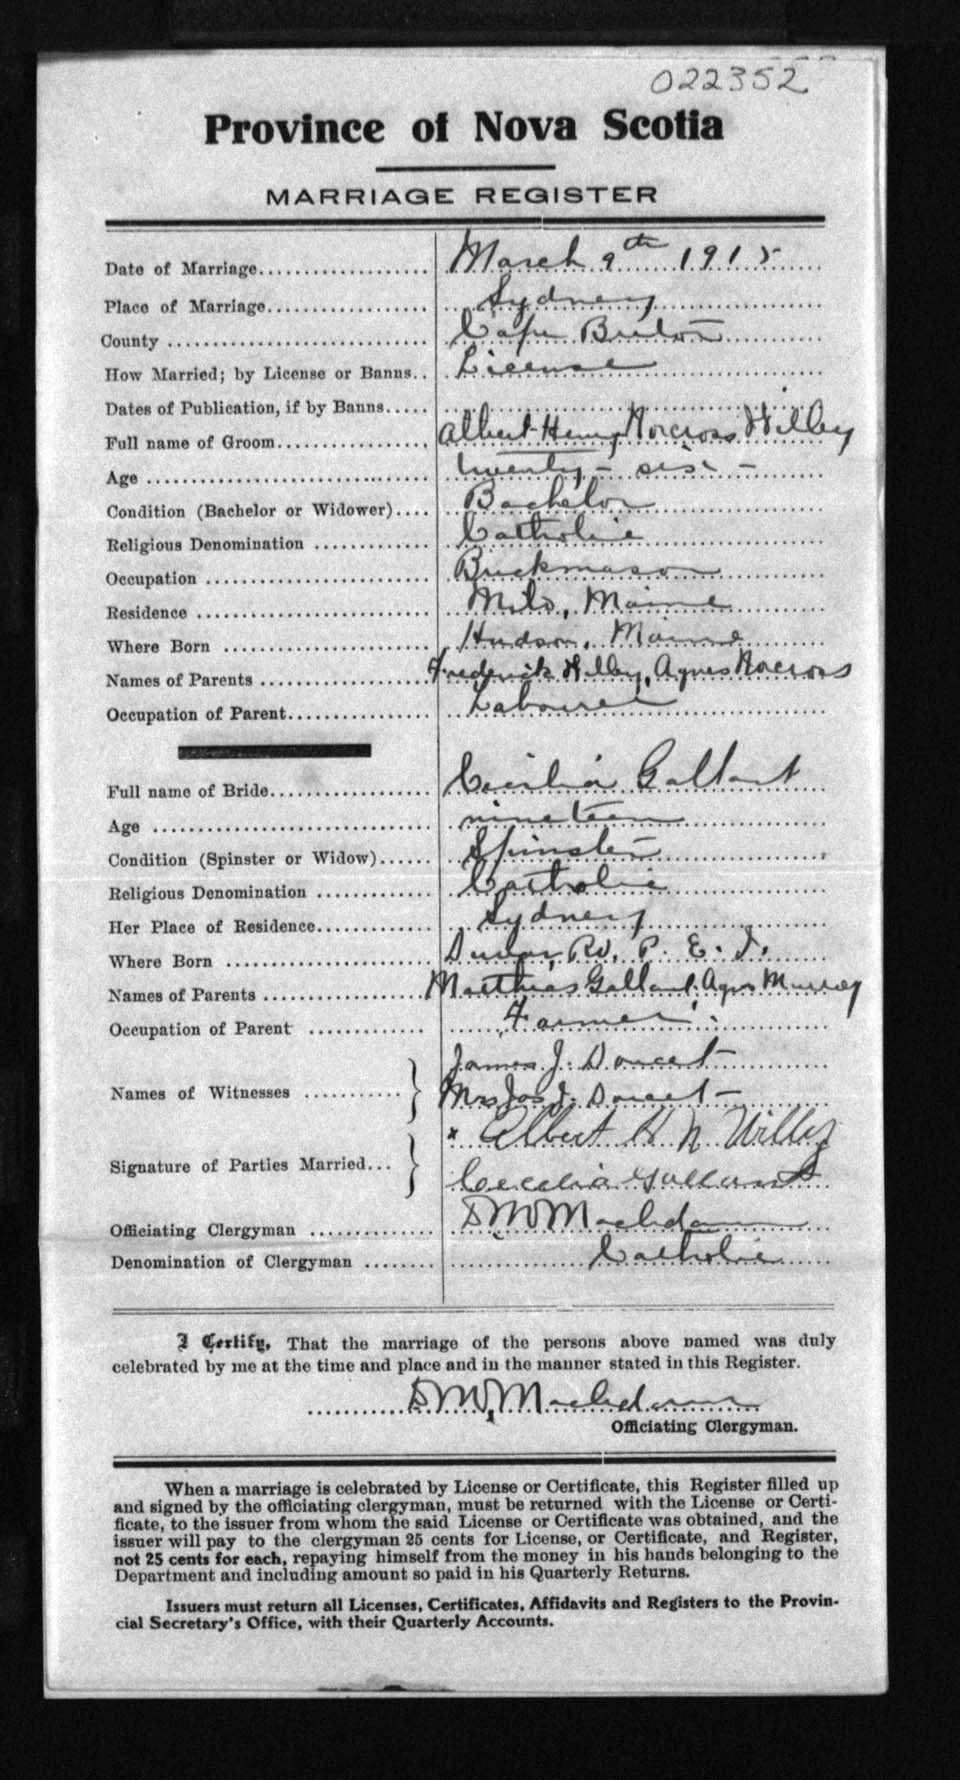 022352
Province of Nova Scotia
MARRIAGE REGISTER
Date of Marriage March 9th 1915
Place of Marriage Sydney
County Cape Breton
How Married; by License or Banns License
Dates of Publication, if by Banns
Full name of Groom Albert Henry Norcross Willey
Age twenty-six-
Condition (Bachelor or Widower) Bachelor
Religious Denomination Catholic
Occupation Brickmason
Residence Milo, Maine
Where Born Hudson, Maine
Names of Parents Frederick Willey, Agnes Norcross
Occupation of Parent Labourer
Full name of Bride Cecilia Gallant
Age nineteen
Condition (Spinster or Widow) Spinster
Religious Denomination Catholic
Her Place of Residence Sydney
Where Born Rd, P. E. I.
Names of Parents Matthias Gallant, Agnes Murray
Occupation of Parent Farmer
James J. Doucet
Names of Witnesses
Mrs Jas J. Doucet
x Albert H N Willey
Signature of Parties Married
Cecelia Gallant
Officiating Clergyman D M MacAdam
Denomination of Clergyman Catholic
I Certify, That the marriage of the persons above named was duly
celebrated by me at the time and place and in the manner stated in this Register.
D M MacAdam
Officiating Clergyman.
When a marriage is celebrated by License or Certificate, this Register filled up
and signed by the officiating clergyman, must be returned with the License or Certi-
ficate, to the issuer from whom the said License or Certificate was obtained, and the
issuer will pay to the clergyman 25 cents for License, or Certificate, and Register,
not 25 cents for each, repaying himself from the money in his hands belonging to the
Department and including amount so paid in his Quarterly Returns.
Issuers must return all Licenses, Certificates, Affidavits and Registers to the Provin-
cial Secretary's Office, with their Quarterly Accounts.